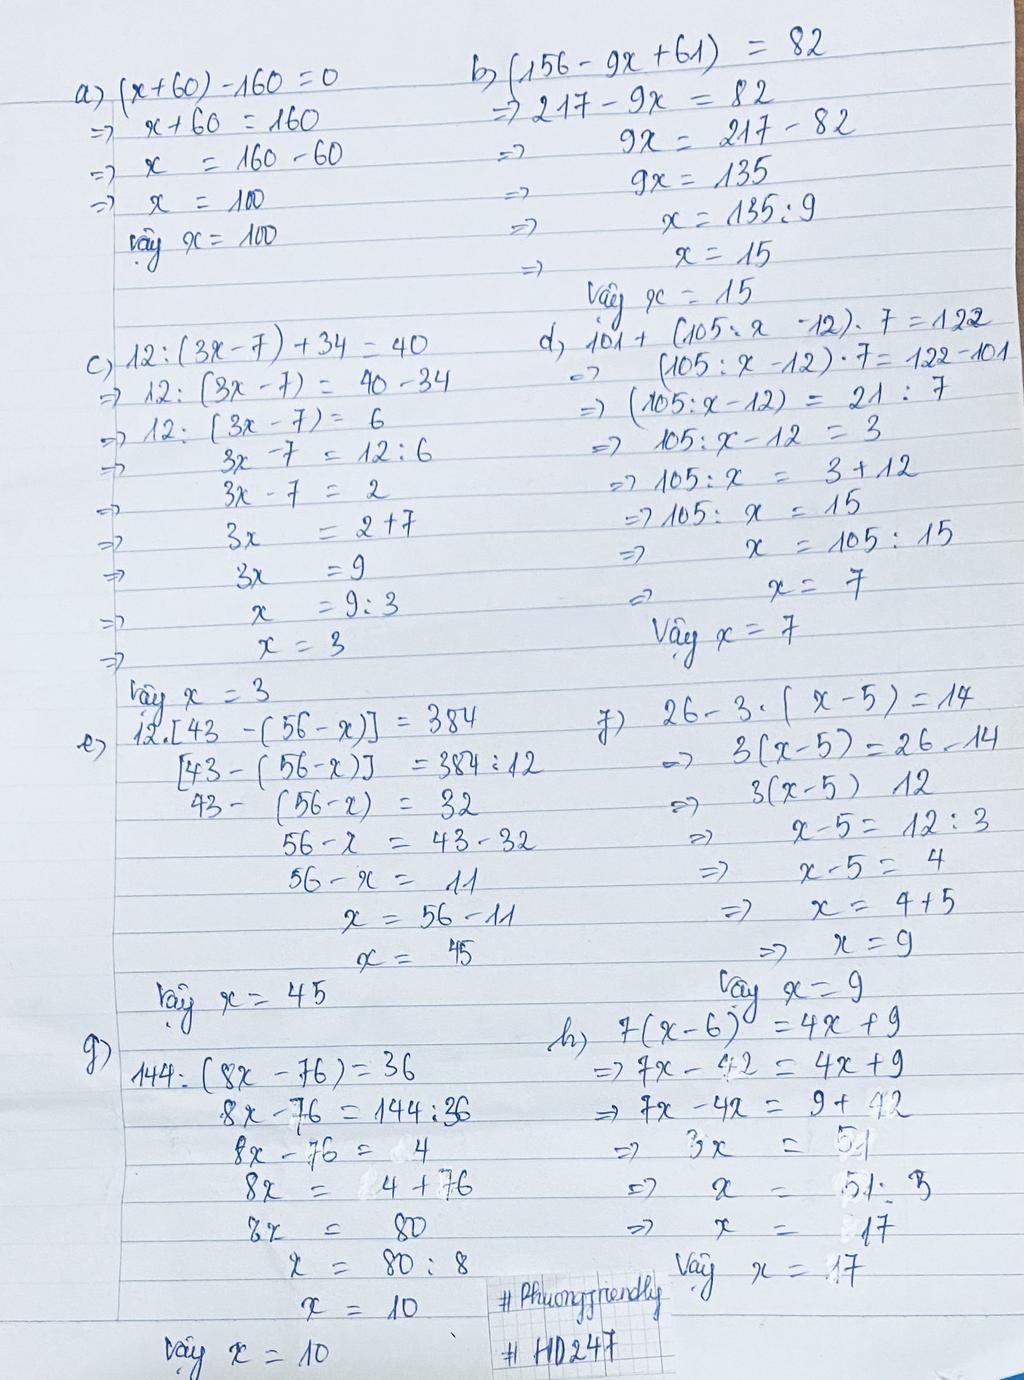 a) (x+60) - 160 = 0
=> x+60 = 160
=> x = 160 - 60
=> x = 100
Vậy x = 100
b) (156 - 9x + 61) = 82
=> 217 - 9x = 82
=> 9x = 217 - 82
=> 9x = 135
=> x = 135 : 9
=> x = 15
Vậy x = 15
c) 12 : (3x - 7) + 34 = 40
=> 12 : (3x - 7) = 40 - 34
=> 12 : (3x - 7) = 6
=> 3x - 7 = 12 : 6
=> 3x - 7 = 2
=> 3x = 2 + 7
=> 3x = 9
=> x = 9 : 3
=> x = 3
Vậy x = 3
d) 101 + (105 : x - 12) . 7 = 122
=> (105 : x - 12) . 7 = 122 - 101
=> (105 : x - 12) = 21 : 7
=> 105 : x - 12 = 3
=> 105 : x = 3 + 12
=> 105 : x = 15
=> x = 105 : 15
=> x = 7
Vậy x = 7
e) 12.[43 - (56 - x)] = 384
[43 - (56 - x)] = 384 : 12
43 - (56 - x) = 32
56 - x = 43 - 32
56 - x = 11
x = 56 - 11
x = 45
Vậy x = 45
f) 26 - 3 . (x - 5) = 14
=> 3(x - 5) = 26 - 14
=> 3(x - 5) 12
=> x - 5 = 12 : 3
=> x - 5 = 4
=> x = 4 + 5
=> x = 9
Vậy x = 9
g) 144 : (8x - 76) = 36
8x - 76 = 144 : 36
8x - 76 = 4
8x = 4 + 76
8x = 80
x = 80 : 8
x = 10
Vậy x = 10
h) 7(x - 6) = 4x + 9
=> 7x - 42 = 4x + 9
=> 7x - 4x = 9 + 42
=> 3x = 51
=> x = 51 : 3
=> x = 17
Vậy x = 17
# Phuongfriendly
# HD247